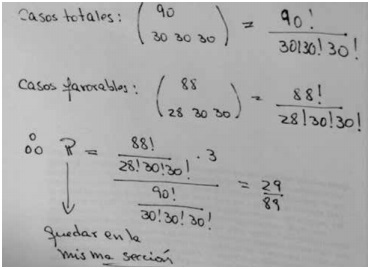 Casos totales: ( 90
30 30 30 ) = 90! / 30!30!30!
Casos favorables: ( 88
28 30 30 ) = 88! / 28!30!30!
∴ P = 88! / 28!30!30! · 3 / 90! / 30!30!30! = 29 / 89
Quedar en la
misma sección